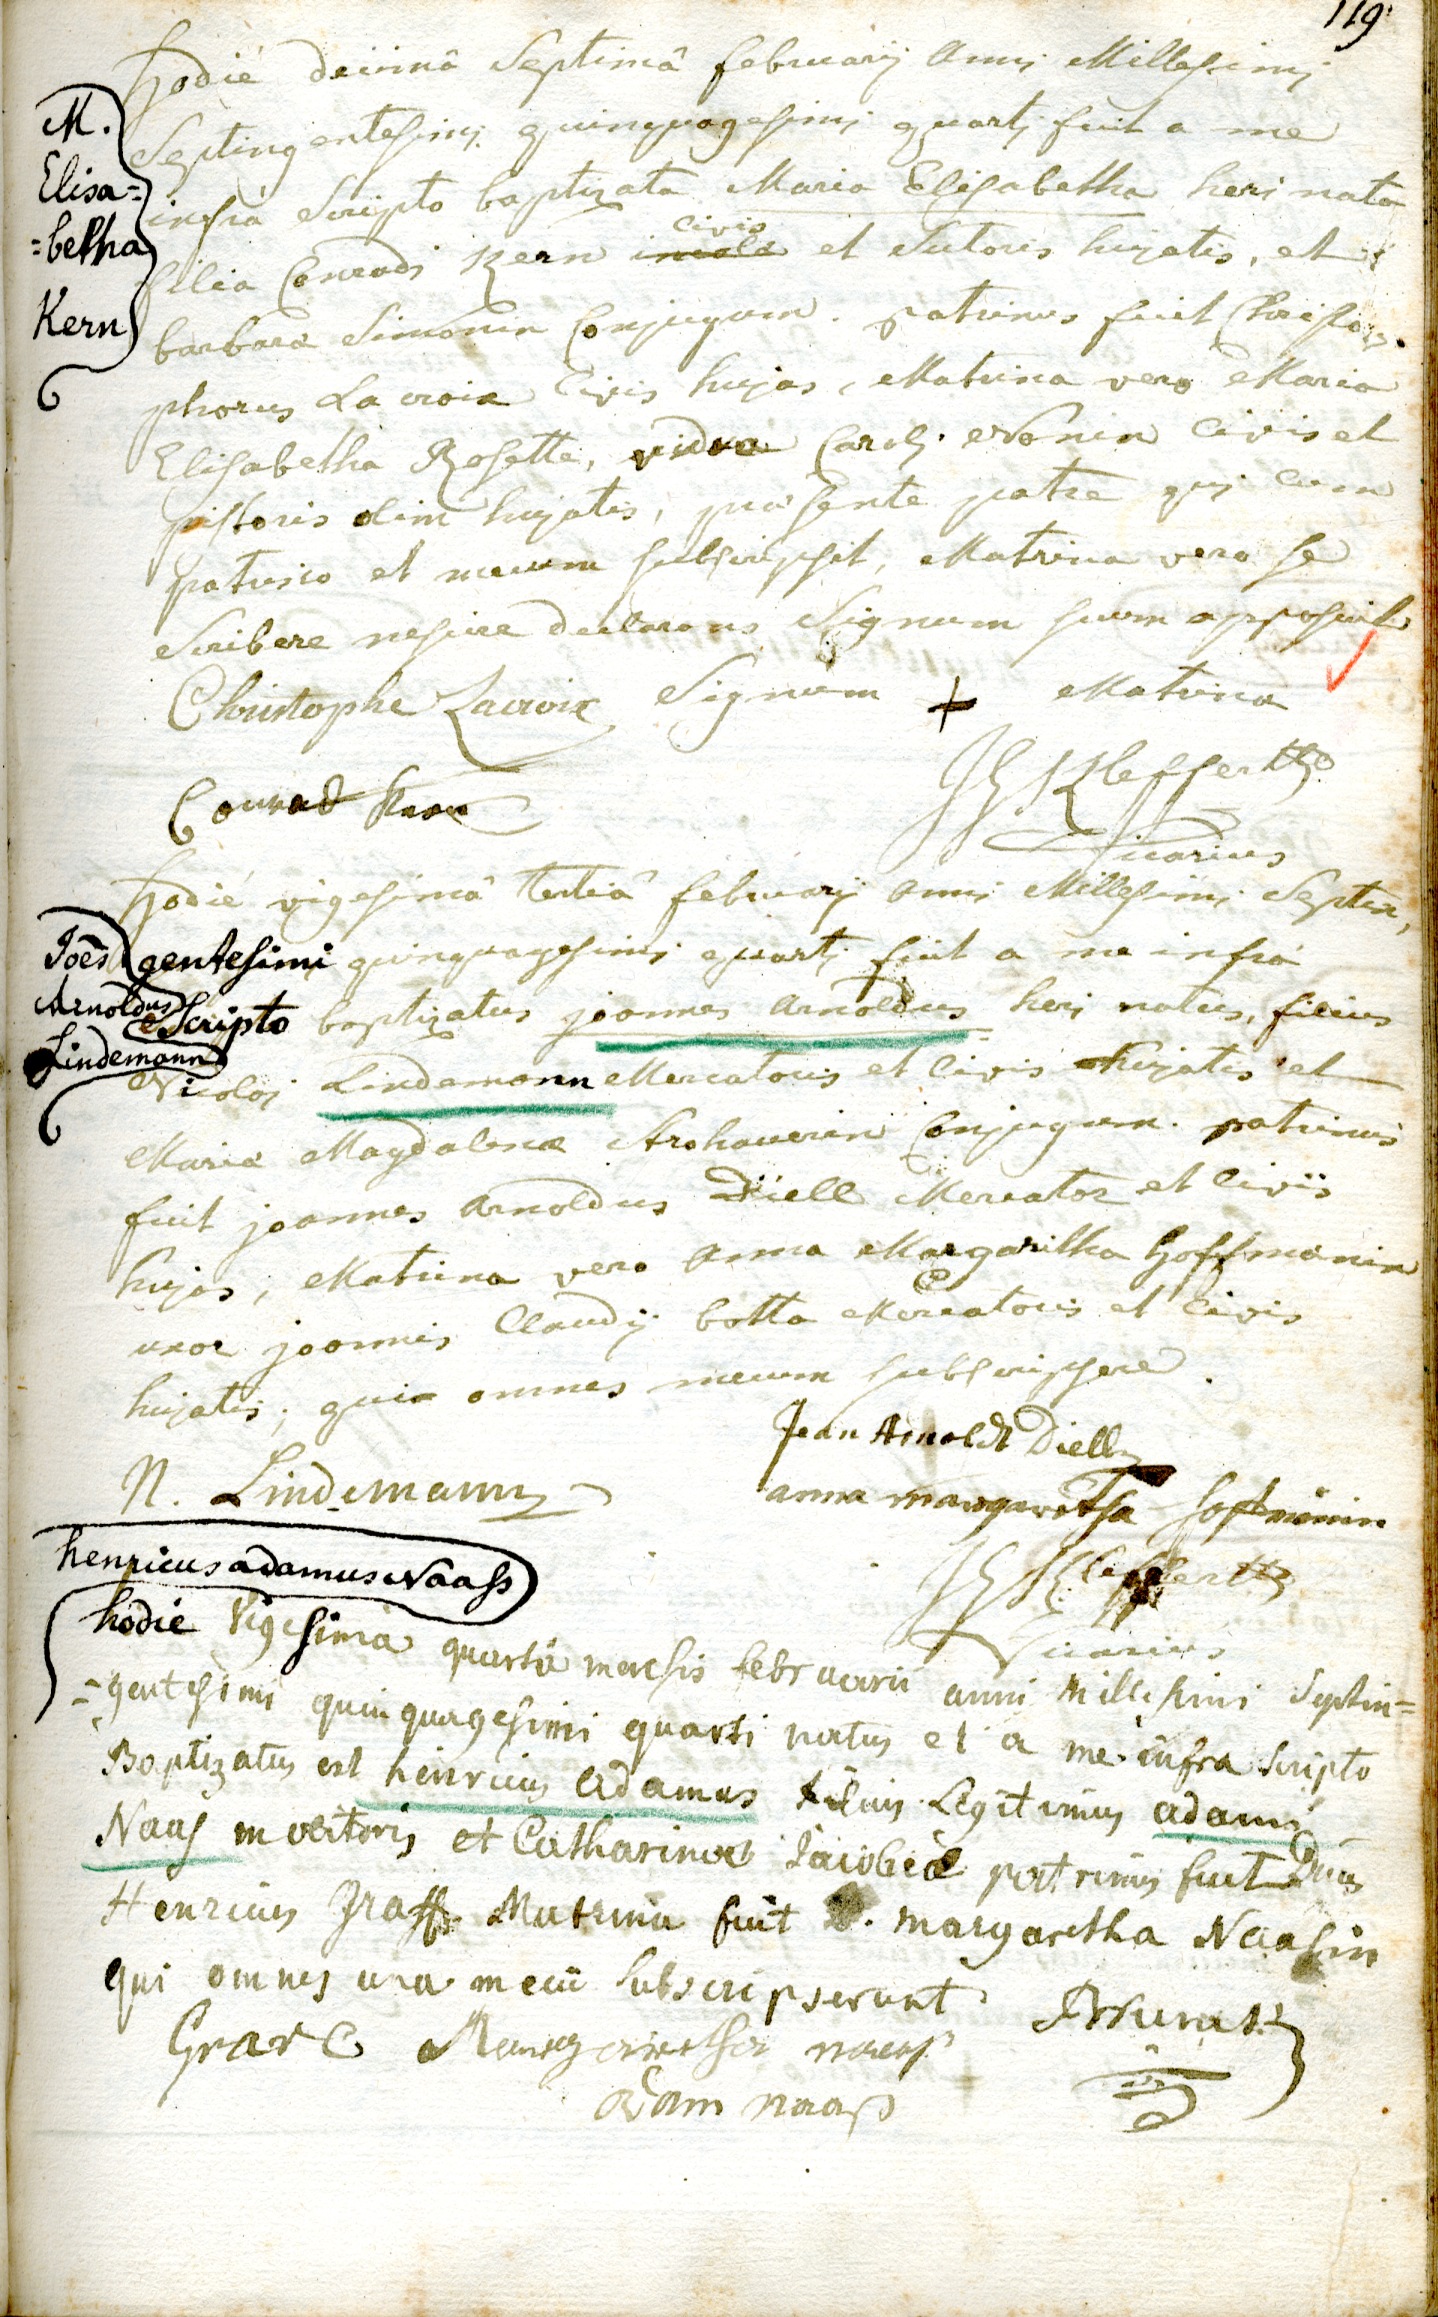 119
hodié decimâ Septimâ februarij anni Millesimi
M.
Elisa=
=betha
Kern
Septingentesimi quinquagesimi quarti fuit a me
infra Scripto baptizata Maria Elisabetha heri nata
civis
filia Conradi Kern incola et Sutoris hujatis, et
barbara Simonin Conjugum. patrinus fuit Christo
phorus La croix Civis hujas, Matrina vero Maria
Elisabetha Rosette, vidua Caroli Nonin Civis et
pistoris olim hujatis, præsente patre qui cum
patrino et mecum subscripsit, Matrina vero se
Scribere nescire declarans Signum suum apposuit
Christophe Lacroix Signum + Matrina
Kleffertz
Conrad Kern
Vicarius
hodié vigesimâ tertiâ februarij anni Millesimi Septin,
Joēs
Arnoldus
Lindemann
gentesimi quinquagesimi quarti fuit a me infra
Scripto baptizatus joannes arnoldus heri natus, filius
Nicolai Lindemann Mercatoris et Civis hujatis et
Maria Magdalena Strohauerin Conjugum. patrinus
fuit joannes arnoldus Diell Mercator et Civis
hujas, Matrina vero anna Margaritha hoffmanin
uxor joannis Claudij botta Mercatoris et Civis
hujatis, qui omnes mecum subscripsere.
Jean Arnoldt Diell
N. Lindemann
anna margaretha hoffmanin
Kleffertz
Vicarius
henricus adamus Naass
hodie Vigesima quarta mensis februarii anni Millesimi Septin=
=gentesimi quinquagesimi quarti natus et a me infra scripto
Baptizatus est henricus adamus filius Legitimus adami
Naas molitoris et Catharinæ Jacobeæ patrinus fuit Dnus
Henricus Graff Matrina fuit margaretha Naasin
qui omnes una mecū subscripserunt
Graff Margaretha naaß
adam naaß